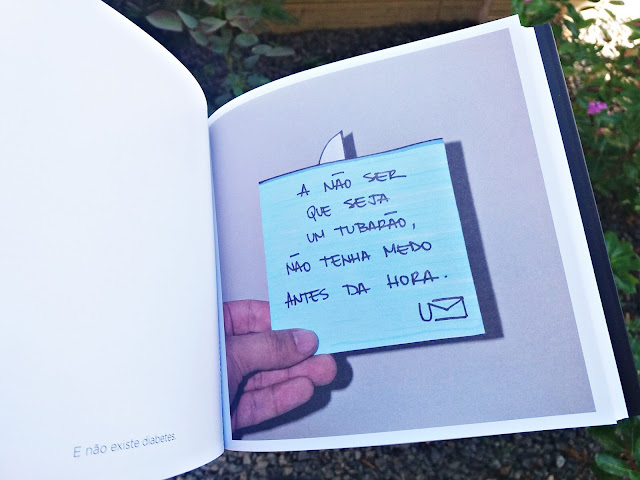 E não existe diabetes.
A NÃO SER
QUE SEJA
UM TUBARÃO,
NÃO TENHA MEDO
ANTES DA HORA.
UM